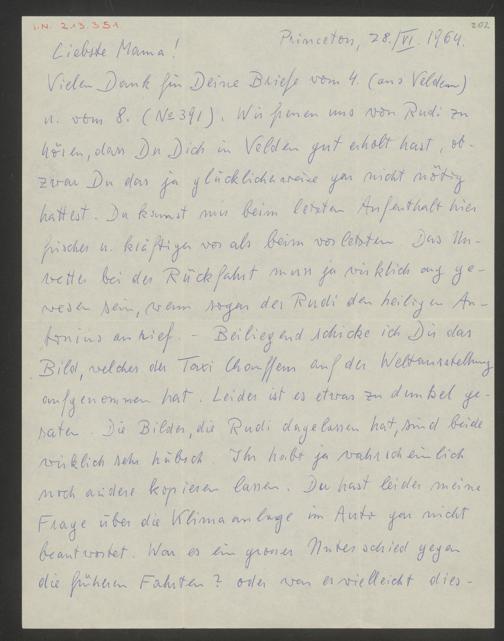 I.N. 213.351
202
Princeton, 28./VI. 1964.
Liebste Mama!
Vielen Dank für Deine Briefe vom 4. (aus Velden)
u. vom 8. (No 391). Wir freuen uns von Rudi zu
hören, dass Du Dich in Velden gut erholt hast, ob-
zwar Du das ja glücklicherweise gar nicht nötig
hattest. Du kamst mir beim letzten Aufenthalt hier
frischer u. kräftiger vor als beim vorletzten. Das Un-
wetter bei der Rückfahrt muss ja wirklich arg ge-
wesen sein, wenn sogar der Rudi den heiligen An-
tonius anrief. – Beiliegend schicke ich Dir das
Bild, welches der Taxi Chauffeur auf der Weltausstellung
aufgenommen hat. Leider ist es etwas zu dunkel ge-
raten. Die Bilder, die Rudi dagelassen hat, sind beide
wirklich sehr hübsch. Ihr habt ja wahrscheinlich
noch andere kopieren lassen. Du hast leider meine
Frage über die Klimaanlage im Auto gar nicht
beantwortet. War es ein grosser Unterschied gegen
die früheren Fahrten? oder war es vielleicht dies-